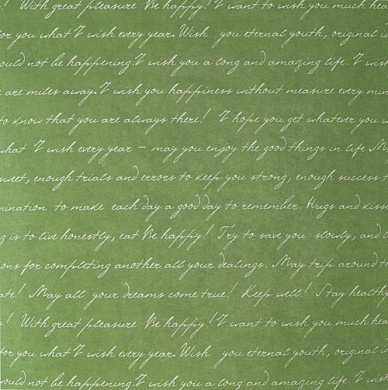 ! With great pleasure Be happy! I want to wish you much hea
for you what I wish every year. Wish you eternal youth, original i
ould not be happening. I wish you a long and amazing life. I wis
are miles away. I wish you happiness without measure every min
to know that you are always there! I hope you get whatever you w
hat I wish every year – may you enjoy the good things in life. Ma
weet, enough trials and errors to keep you strong, enough success t
mination to make each day a good day to remember. Hugs and kisse
g is to live honestly, eat Be happy! Try to save you slowly, and l
ons for completing another all your dealings. May trip around t
ate! May all your dreams come true! Keep well! Stay health
y! With great pleasure Be happy! I want to wish you much hea
for you what I wish every year. Wish you eternal youth, original i
ould not be happening. I wish you a long and amazing life. I wis